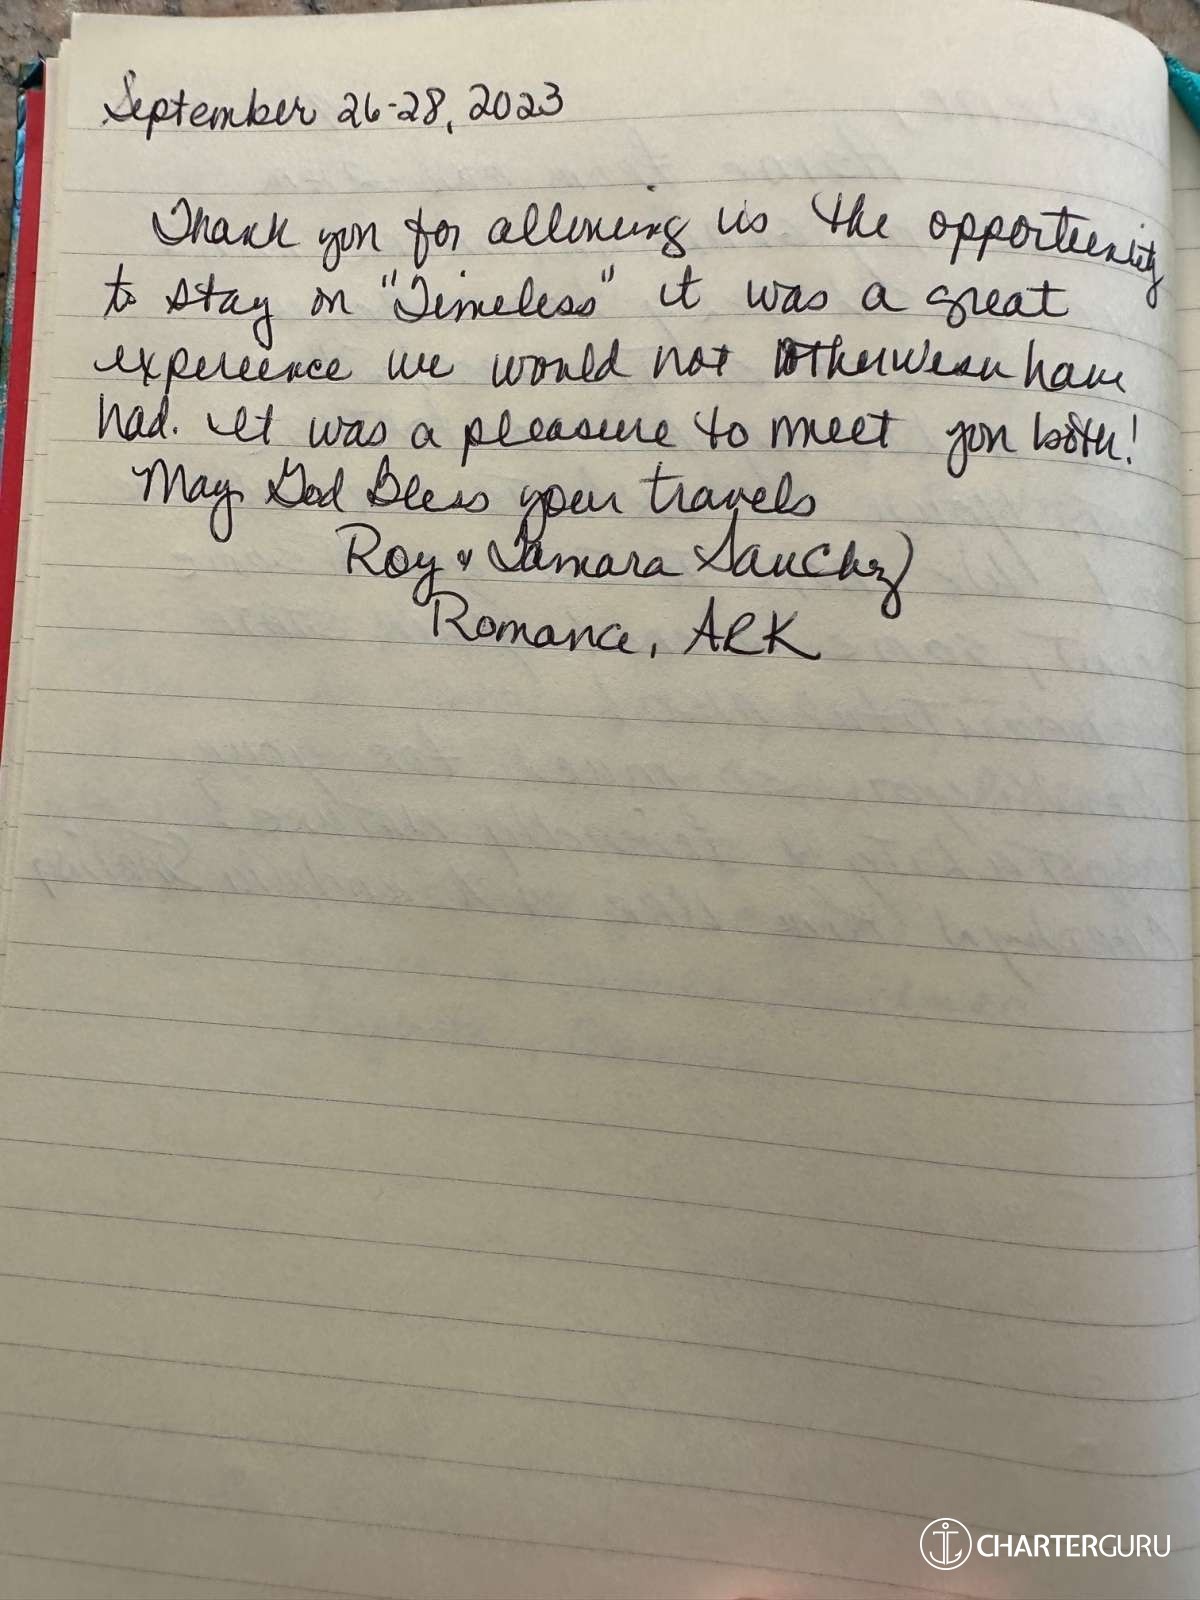 September 26-28, 2023
Thank you for allowing us the opportunity
to stay on "Timeless" it was a great
experience we would not otherwise have
had. It was a pleasure to meet you both!
May God Bless your travels
Roy & Tamara Sanchez
Romance, ARK
CHARTERGURU